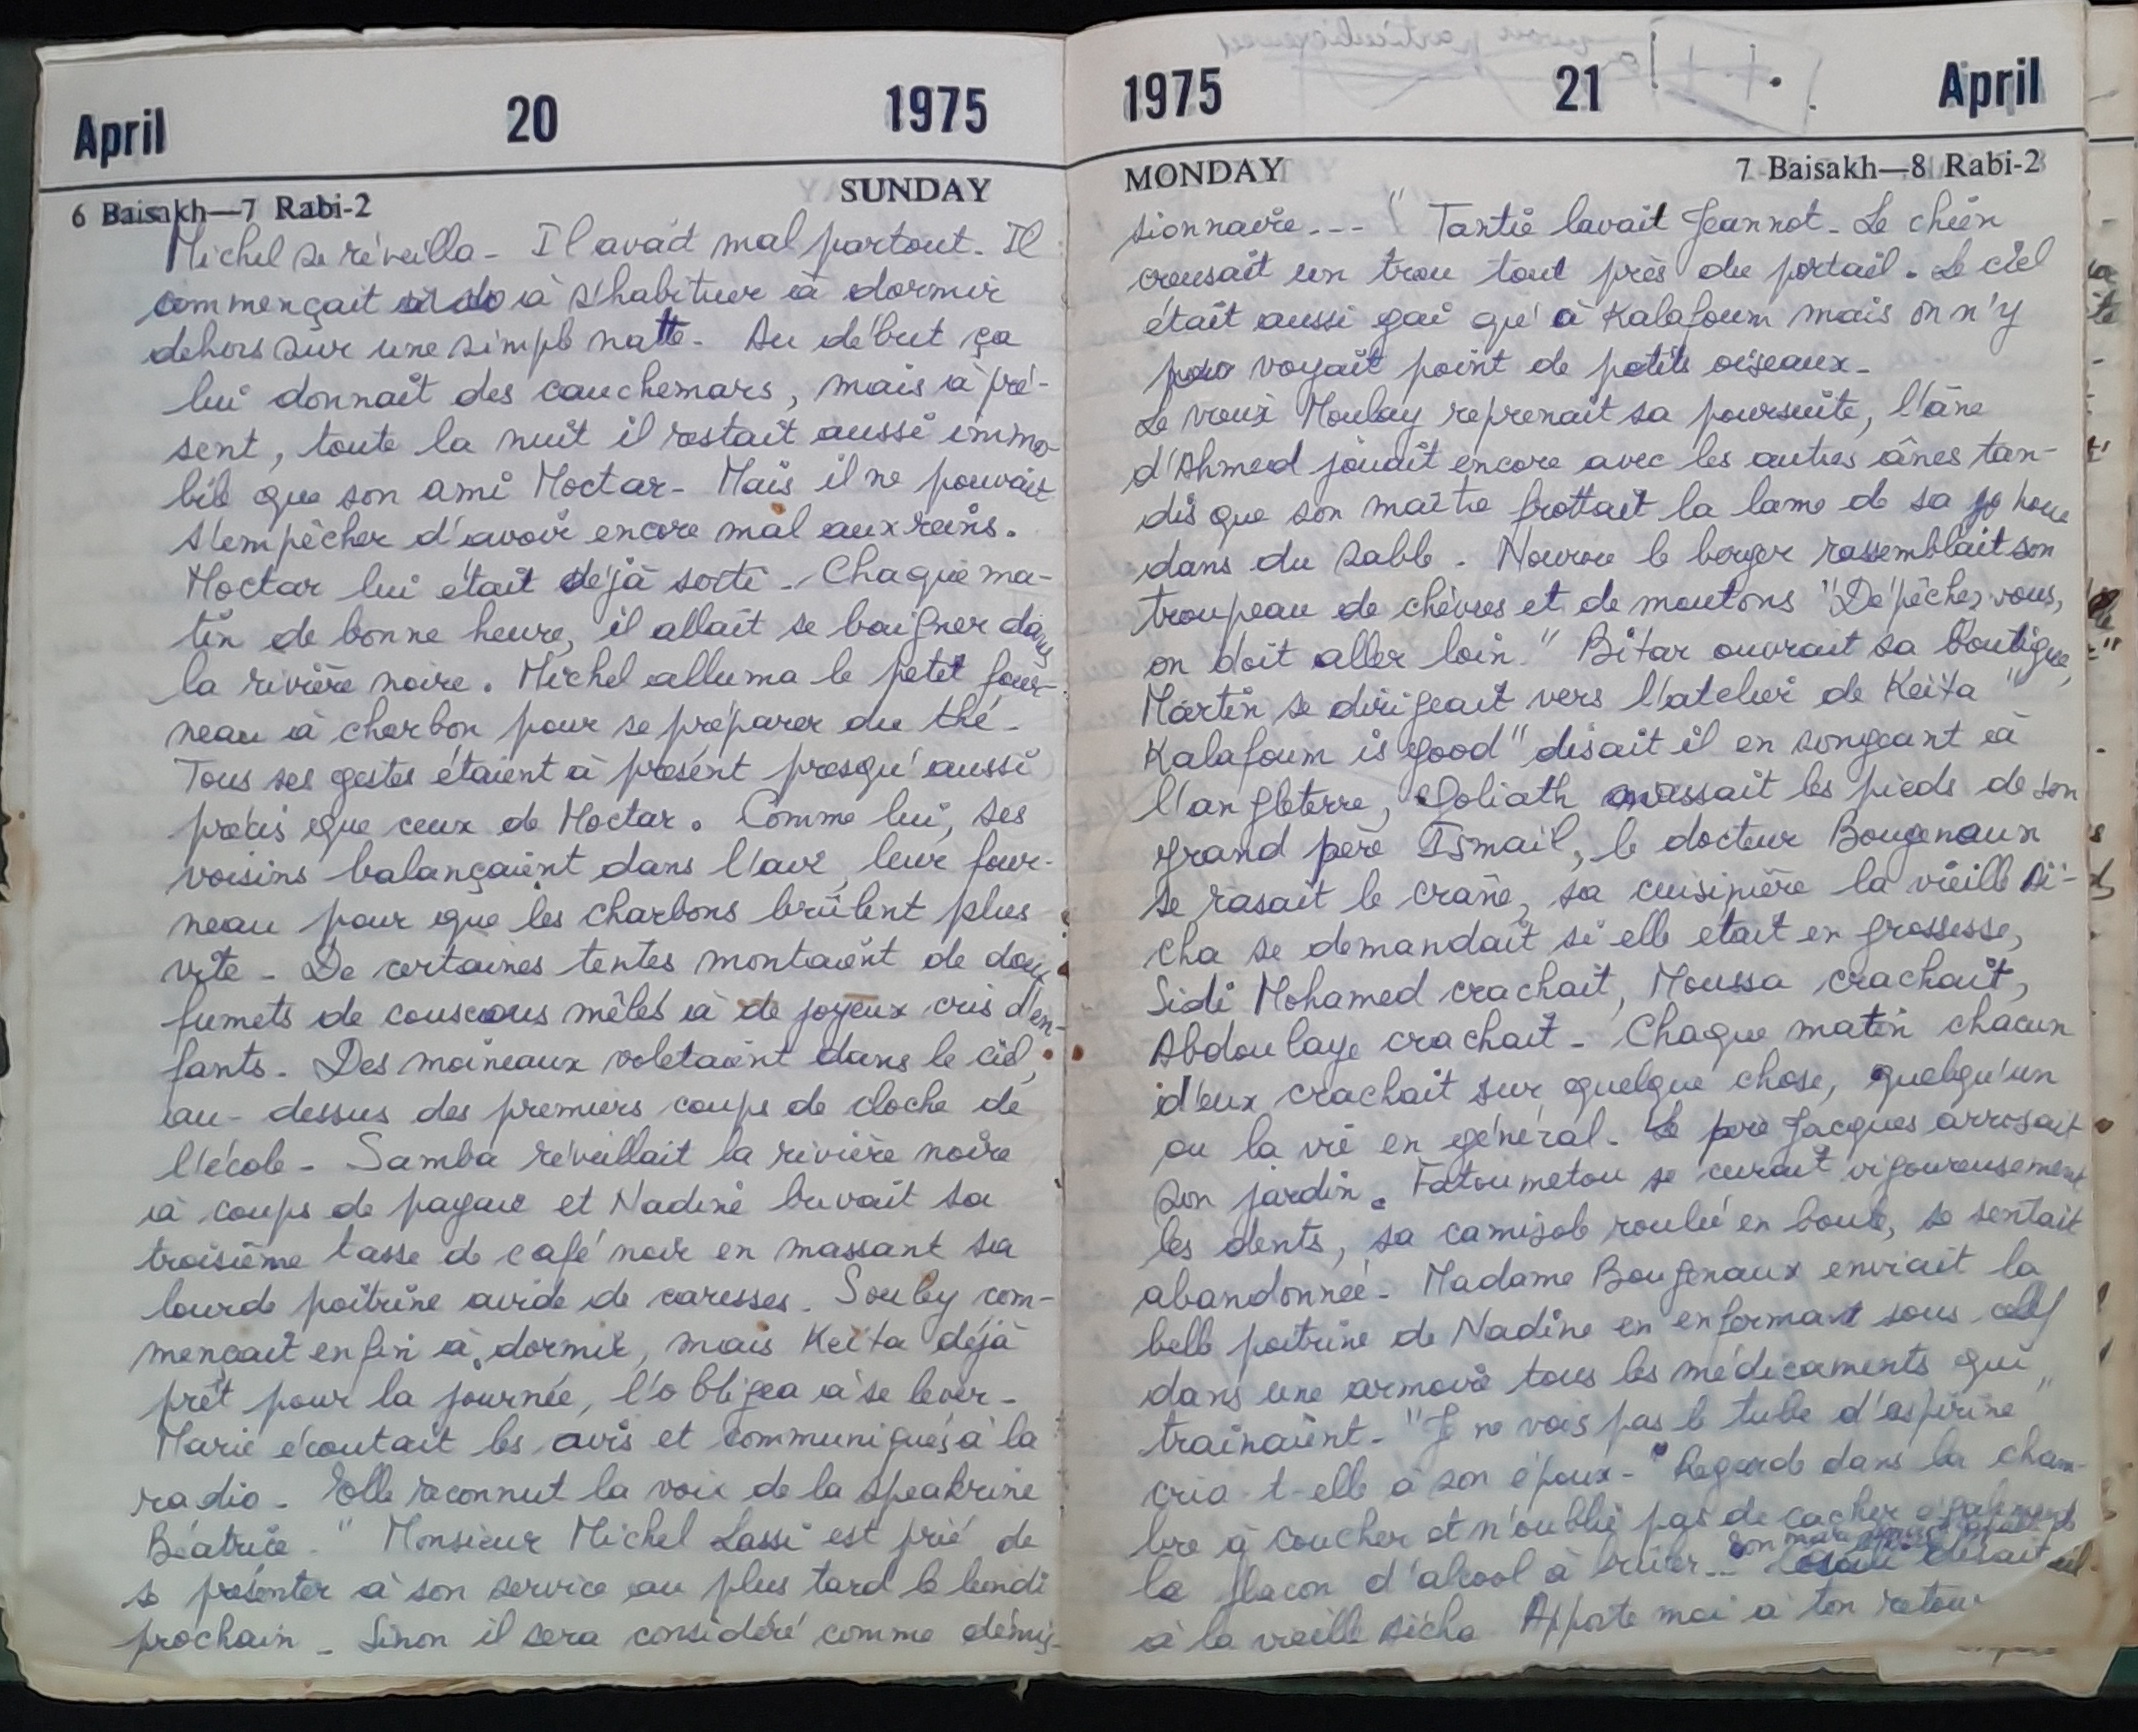 April 20 1975
6 Baisakh—7 Rabi-2 SUNDAY
Michel se réveilla - Il avait mal partout - Il
commençait à s'habituer à dormir
dehors sur une simple natte - Au début ça
lui donnait des cauchemars, mais à pré-
sent, toute la nuit il restait aussi immo-
bile que son ami Moctar - Mais il ne pouvait
s'empêcher d'avoir encore mal aux reins.
Moctar lui était déjà sorti - Chaque ma-
tin de bonne heure, il allait se baigner dans
la rivière noire. Michel alluma le petit four-
neau à charbon pour se préparer du thé -
Tous ses gestes étaient à présent presqu'aussi
précis que ceux de Moctar. Comme lui, ses
voisins balançaient dans l'air, leur four-
neau pour que les charbons brûlent plus
vite - De certaines tentes montaient de doux
fumets de couscous mêlés à de joyeux cris d'en-
fants - Des moineaux voletaient dans le ciel,
au-dessus des premiers coups de cloche de
l'école - Samba réveillait la rivière noire
à coups de pagaie et Nadine buvait sa
troisième tasse de café noir en massant sa
lourde poitrine avide de caresses. Souley com-
mençait enfin à dormir, mais Keïta déjà
prêt pour la journée, l'obligea à se lever -
Marie écoutait les avis et communiqués à la
radio - Elle reconnut la voix de la speakrine
Béatrice - " Monsieur Michel Lassi est prié de
se présenter à son service au plus tard le lundi
prochain - Sinon il sera considéré comme démis-
1975 21 April
MONDAY 7 Baisakh—8 Rabi-2
sionnaire --- " Tantie lavait Jeannot - Le chien
creusait un trou tout près du portail. Le ciel
était aussi gai qu'à Kalafoum mais on n'y
voyait point de petits oiseaux -
Le vieux Moulay reprenait sa poursuite, l'âne
d'Ahmed jouait encore avec les autres ânes tan-
dis que son maître frottait la lame de sa houe
dans du sable. Nourou le berger rassemblait son
troupeau de chèvres et de moutons "Dépêchez vous,
on doit aller loin." Bitar ouvrait sa boutique,
Martin se dirigeait vers l'atelier de Keïta "
Kalafoum is good" disait il en songeant à
l'angleterre, Goliath massait les pieds de son
grand père Ismaïl, le docteur Bougenaux
se rasait le crâne, sa cuisinière la vieille Aï-
cha se demandait si elle etait en grossesse,
Sidi Mohamed crachait, Moussa crachait,
Abdoulaye crachait - Chaque matin chacun
d'eux crachait sur quelque chose, quelqu'un
ou la vie en général - Le père Jacques arrosait
son jardin. Fatoumetou se curait vigoureusement
les dents, sa camisole roulée en boule, se sentait
abandonnée - Madame Bougenaux enviait la
belle poitrine de Nadine en enfermant sous clef
dans une armoire tous les médicaments qui
trainaient - "Je ne vois pas le tube d'aspirine"
cria-t-elle à son époux - "Regarde dans la cham-
bre à coucher et n'oublie pas de cacher également
le flacon d'alcool à brûler -- " Son mari disait
à la vieille Aïcha Apporte moi à ton retour